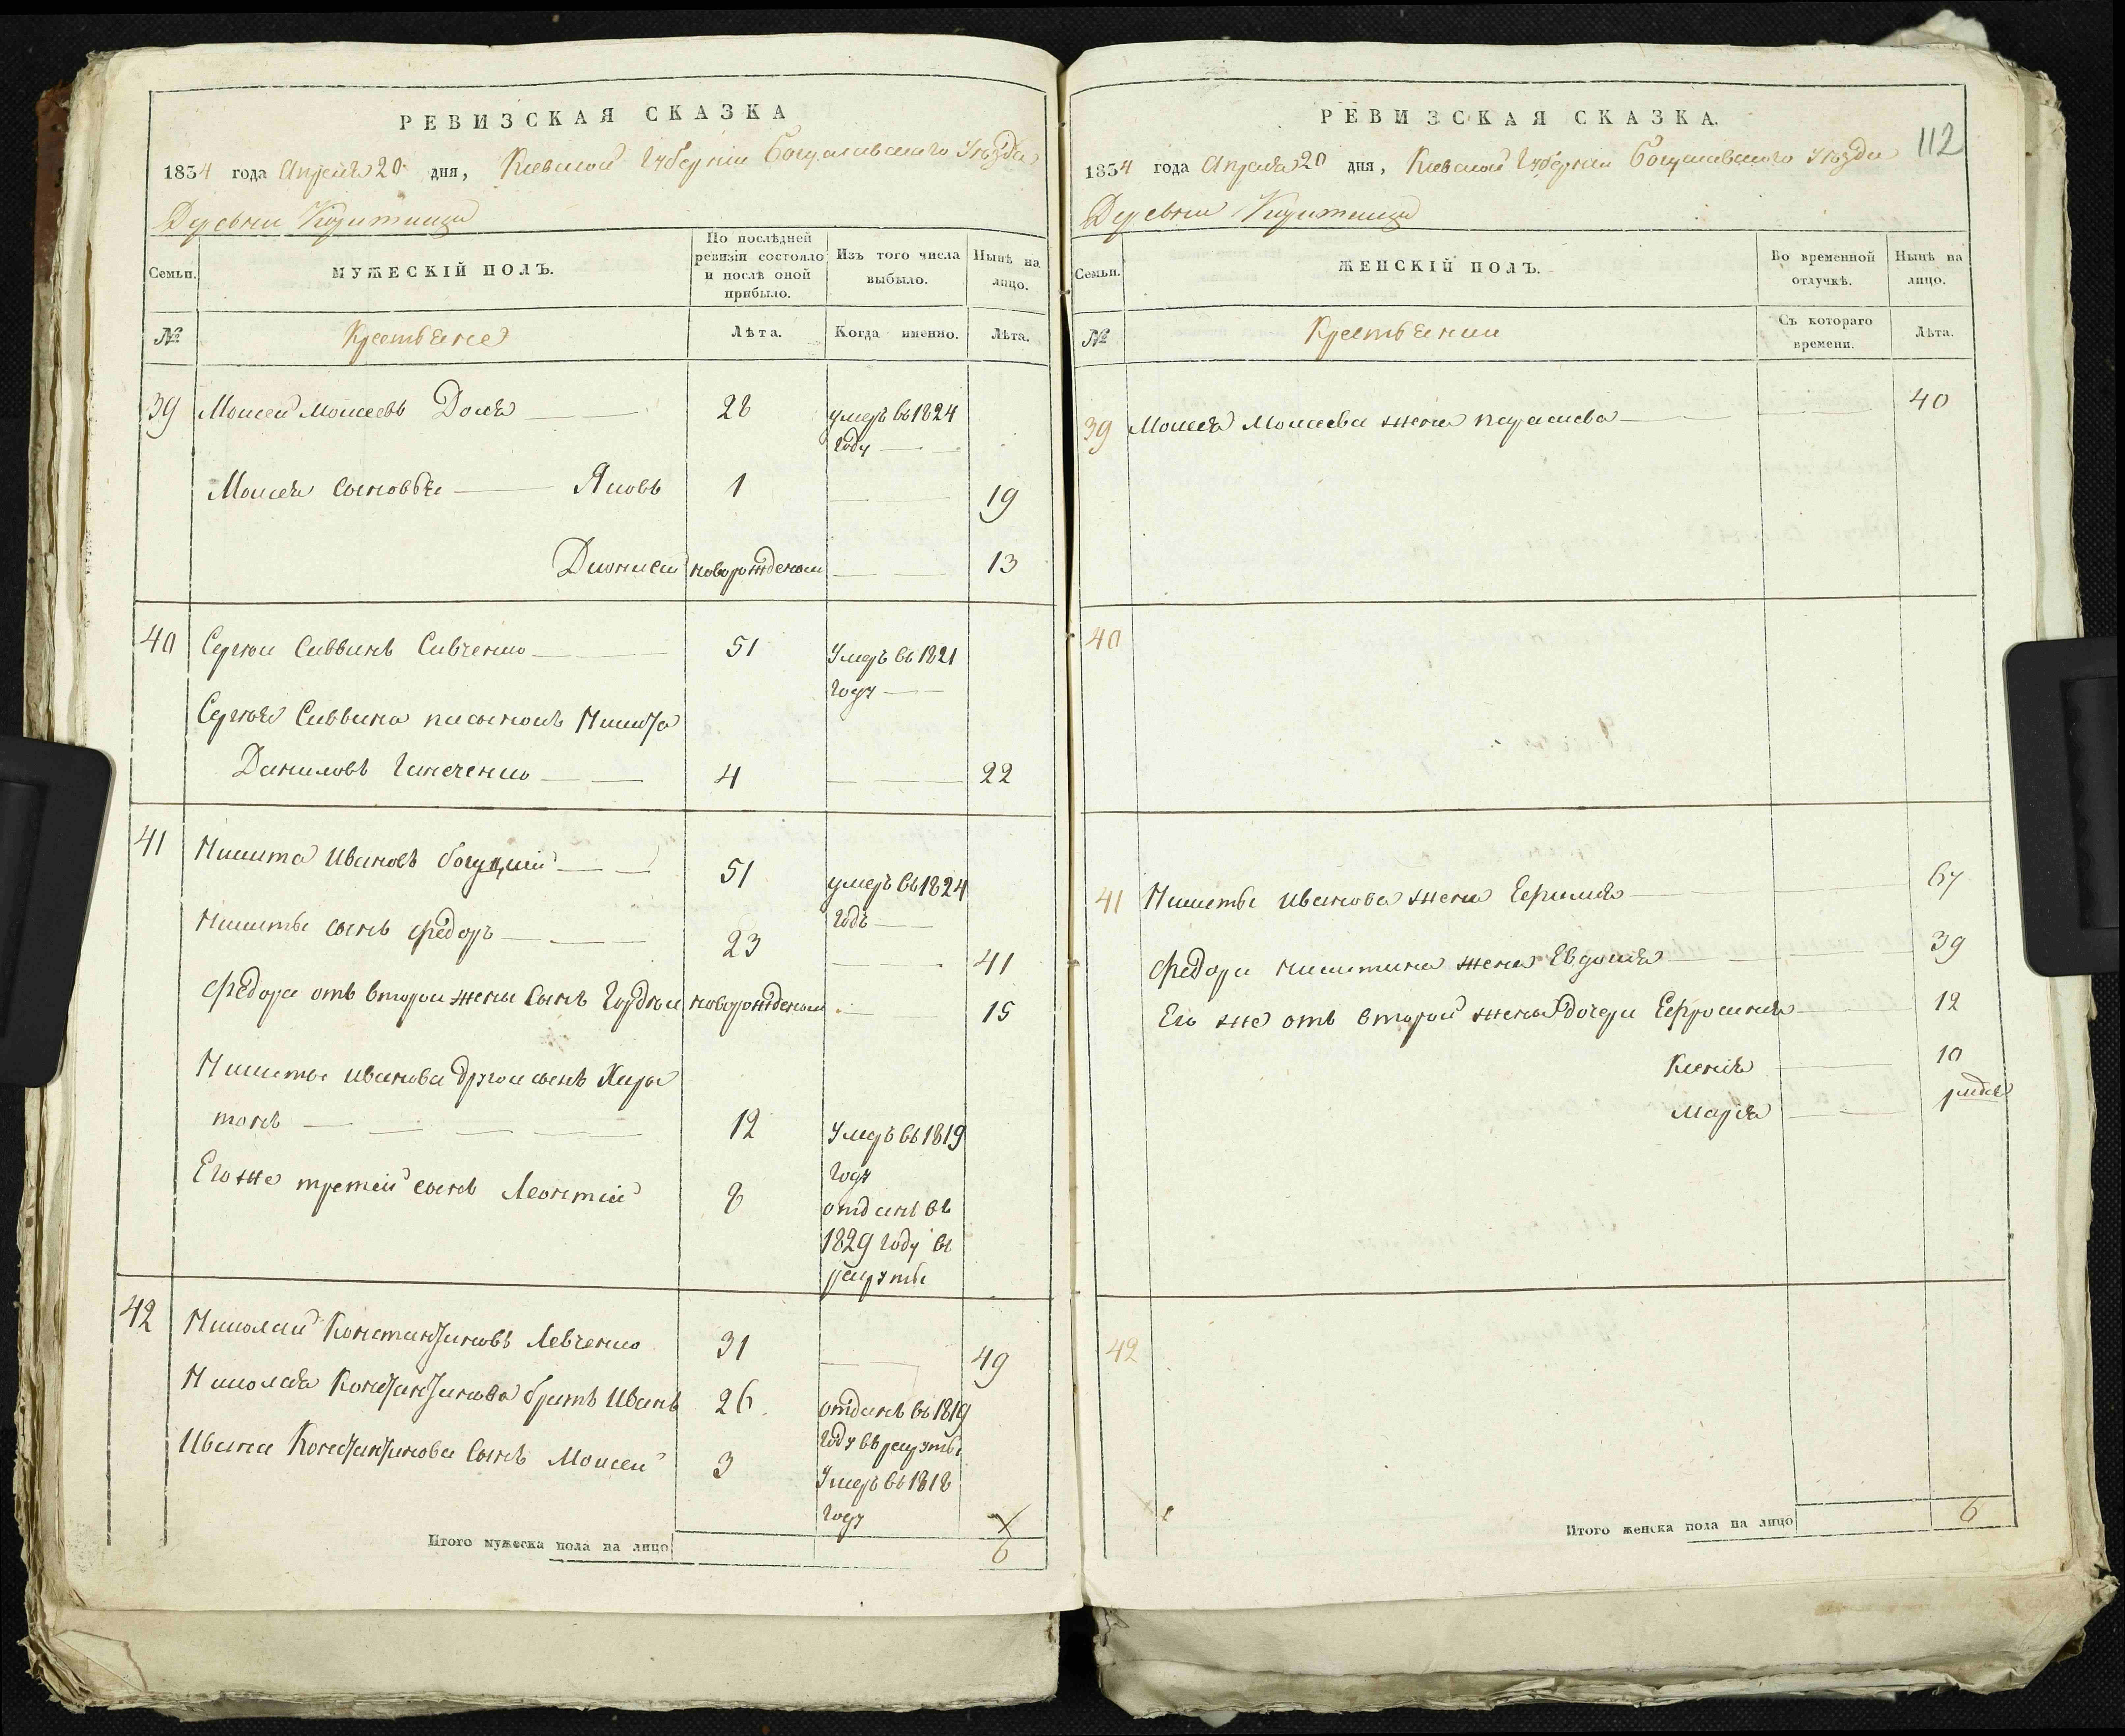 РЕВИЗСКАЯ СКАЗКА
1834 года Апреля 20 дня, Киевской Губернии Богуславского уѣзда
Деревни
Семьи.
МУЖЕСКІЙ ПОЛЪ.
По послѣдней ревизіи состояло и послѣ оной прибыло.
Изъ того числа выбыло.
Нынѣ на лицо.
№
Крестьяне
Лѣта.
Когда именно.
Лѣта.
39 Моисей Моисеевъ Доля 28 умеръ въ 1824
году
Моисея сыновья Яковъ 1 19
Дионисий новорожденый 13
40 Сергий Саввинъ Савченко 51 Умеръ въ 1821
году
Сергея Саввина пасынокъ Никита
Даниловъ Ганеченко 4 22
41 Никита Ивановъ Богуцкий 51 умеръ въ 1824
годъ
Никиты сынъ Федоръ 23 41
Федора отъ второй жены сынъ Гордѣй новорожденый 15
Никиты Иванова другой сынъ Хари
тонъ 12 Умеръ въ 1819
году
Его же третий сынъ Леонтий 8 отданъ въ
1829 году въ
рекруты
42 Николай Константиновъ Левченко 31 49
Николая Константинова братъ Иванъ 26 отданъ въ 1819
году въ рекруты
Ивана Константинова сынъ Моисей 3 Умеръ въ 1818
году
Итого мужеска пола на лицо 6
РЕВИЗСКАЯ СКАЗКА.
112
1834 года Апреля 20 дня, Киевской Губернии Богуславского уѣзда
Деревни
Семьи.
ЖЕНСКІЙ ПОЛЪ.
Во временной отлучкѣ.
Нынѣ на лицо.
№
Крестьянки
Съ котораго времени.
Лѣта.
39 Моисея Моисеева жена Параскева 40
40
41 Никиты Иванова жена 67
Федора Никитина жена Евдокия 39
Его же отъ второй жены дочери Ефросиния 12
Ксения 10
Мария
42
Итого женска пола на лицо 6